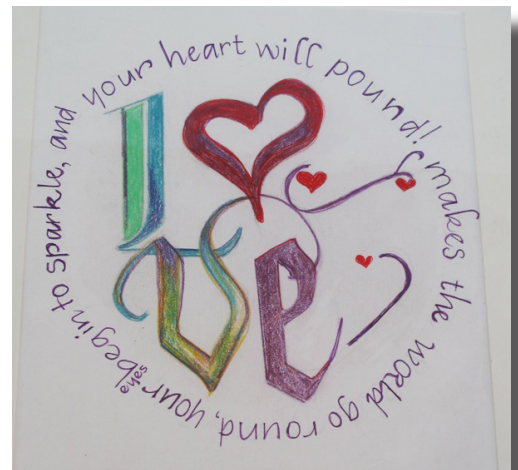 l♥
ve
makes the world go round, your eyes begin to sparkle, and your heart will pound!